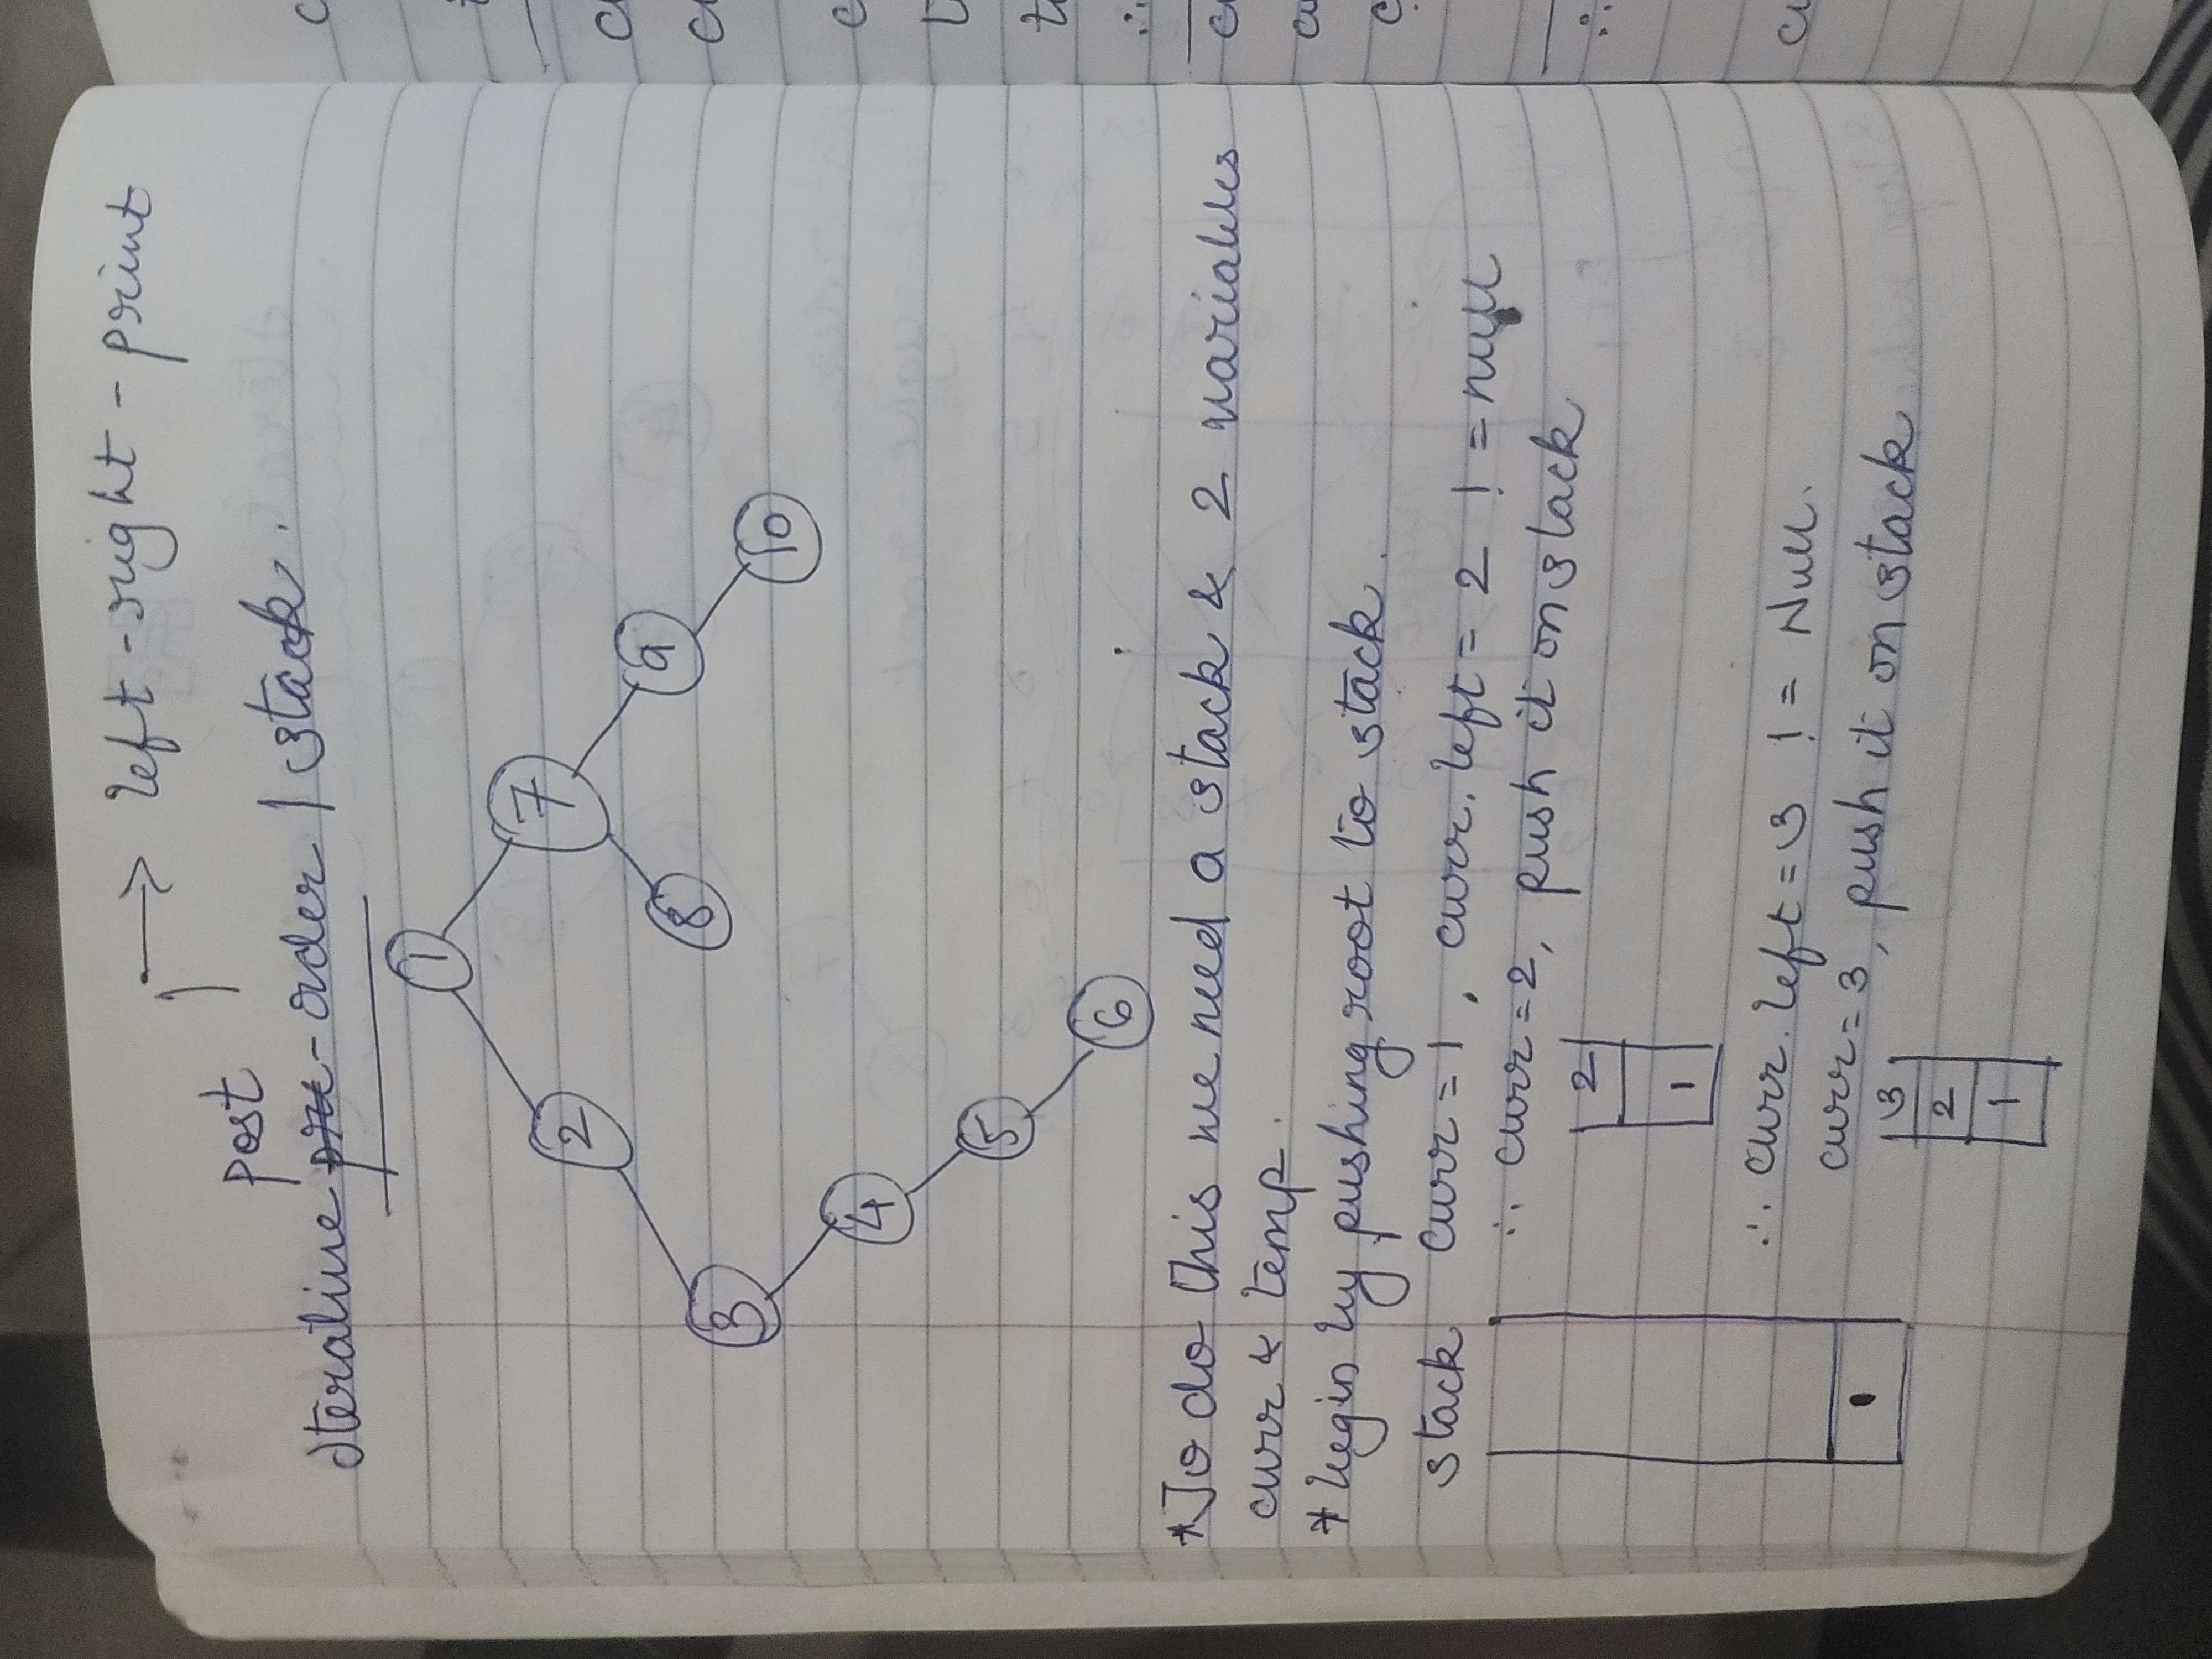 → left-right-print
post
Iterative pre-order / stack.
1
2
7
3
8
9
4
10
5
6
*To do this we need a stack & 2 variables
curr & temp.
* begin by pushing root to stack.
stack curr=1, curr.left=2 !=null
∴ curr=2, push it on stack
2
1
∴ curr.left=3 != Null.
curr=3, push it on stack
1
3
2
1